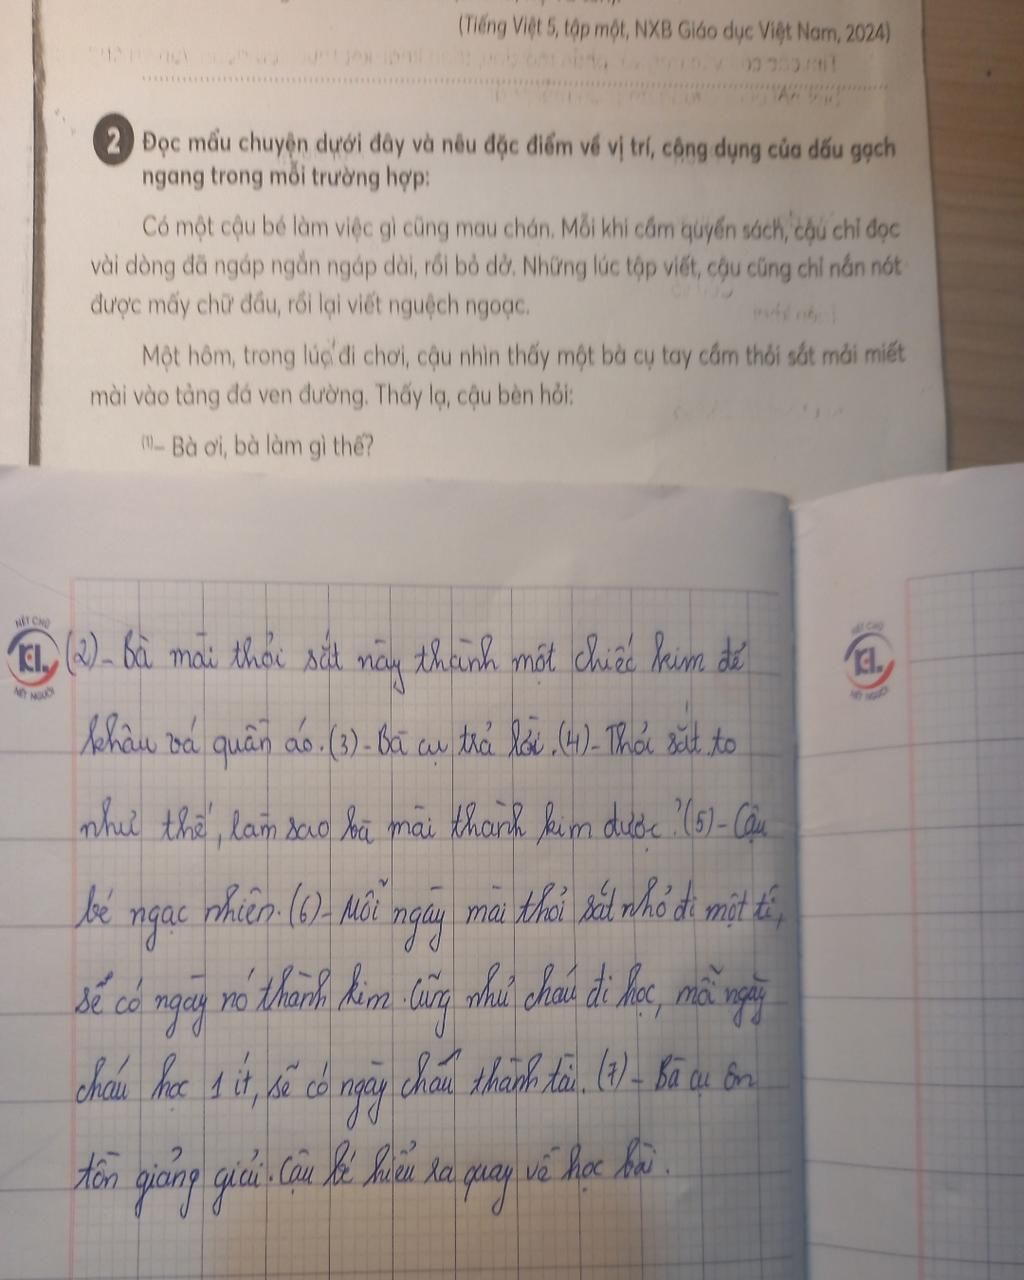 (Tiếng Việt 5, tập một, NXB Giáo dục Việt Nam, 2024)
2 Đọc mẩu chuyện dưới đây và nêu đặc điểm về vị trí, công dụng của dấu gạch
ngang trong mỗi trường hợp:
Có một cậu bé làm việc gì cũng mau chán. Mỗi khi cầm quyển sách, cậu chỉ đọc
vài dòng đã ngáp ngắn ngáp dài, rồi bỏ dở. Những lúc tập viết, cậu cũng chỉ nắn nót
được mấy chữ đầu, rồi lại viết nguệch ngoạc.
Một hôm, trong lúc đi chơi, cậu nhìn thấy một bà cụ tay cầm thỏi sắt mải miết
mài vào tảng đá ven đường. Thấy lạ, cậu bèn hỏi:
(1)– Bà ơi, bà làm gì thế?
NÉT CHỮ
KL
NẾT NGƯỜI
NÉT CHỮ
KL
NẾT NGƯỜI
(2)- Bà mài thỏi sắt này thành một chiếc kim để
khâu vá quần áo. (3)- Bà cụ trả lời. (4)- Thỏi sắt to
như thế, làm sao bà mài thành kim được? (5)- Cậu
bé ngạc nhiên. (6)- Mỗi ngày mài thỏi sắt nhỏ đi một tí,
sẽ có ngày nó thành kim. Cũng như cháu đi học, mỗi ngày
cháu học 1 ít, sẽ có ngày cháu thành tài. (7)- Bà cụ ôn
tồn giảng giải. Cậu bé hiểu ra quay về học bài.